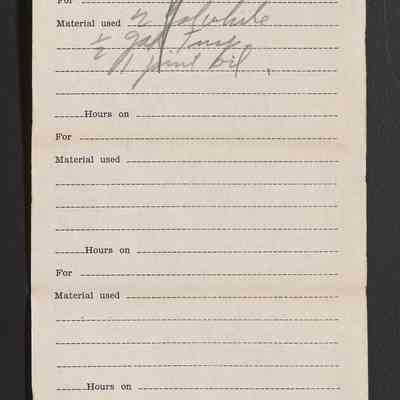 For
Material used 2 gal white
½ gal Turp
1 pint oil
Hours on
For
Material used
Hours on
For
Material used
Hours on